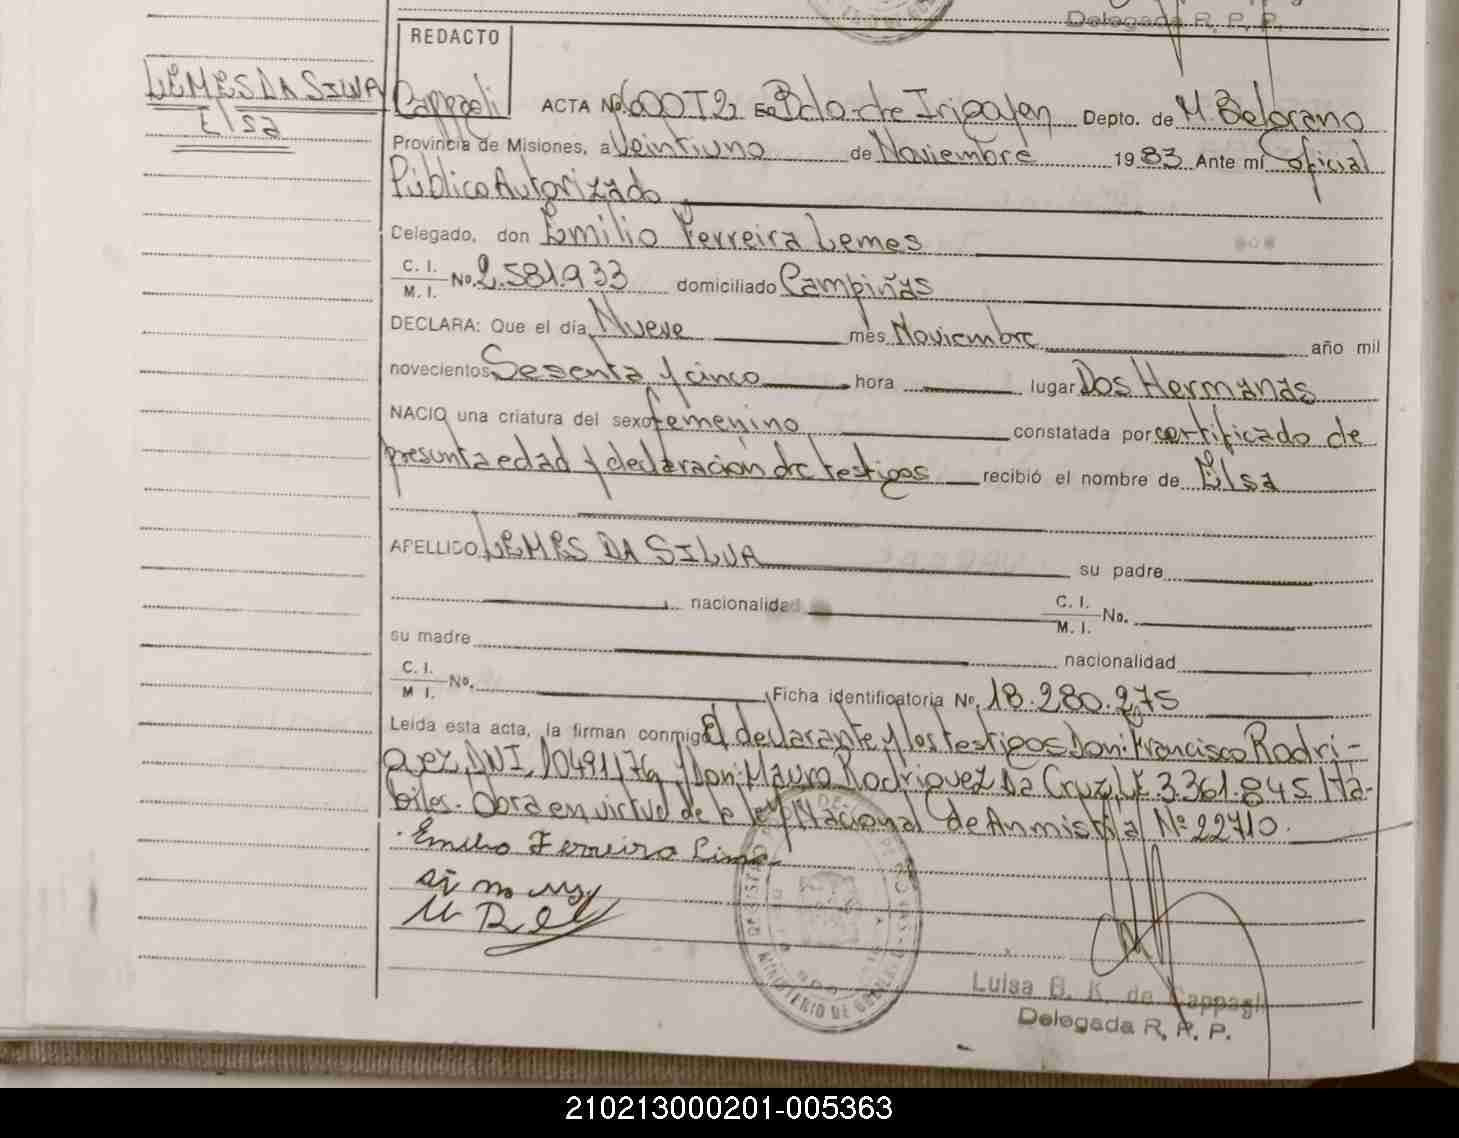 Delegada R. P. P.
REDACTO
LEMES DA SILVA
Elsa
Cappagli
ACTA No. 600T2 En Bdo. de Irigoyen Depto. de M. Belgrano
Provincia de Misiones, a Veintiuno de Noviembre 1983 Ante mí Oficial
Público Autorizado
Delegado, don Emilio Ferreira Lemes
C. I.
M. I. No. 2.581.933 domiciliado Campiñas
DECLARA: Que el día Nueve mes Noviembre año mil
novecientos Sesenta y cinco hora lugar Dos Hermanas
NACIO una criatura del sexo femenino constatada por certificado de
presunta edad y declaración de testigos recibió el nombre de Elsa
APELLIDO LEMES DA SILVA su padre
nacionalidad C. I.
M. I. No.
su madre nacionalidad
C. I.
M I. No. Ficha identificatoria No. 18.280.275
Leída esta acta, la firman conmigo El declarante y los testigos Don: Francisco Rodri-
guez, DNI, y Don: Mauro Rodriguez Da Cruz, LE 3.361.845 Há-
biles. Obra en virtud de la ley Nacional de Anmistía Nº 22710.
Emilio Ferreira
MINISTERIO DE GOBIERNO
Luisa B. K. de Cappagli
Delegada R. P. P.
210213000201-005363